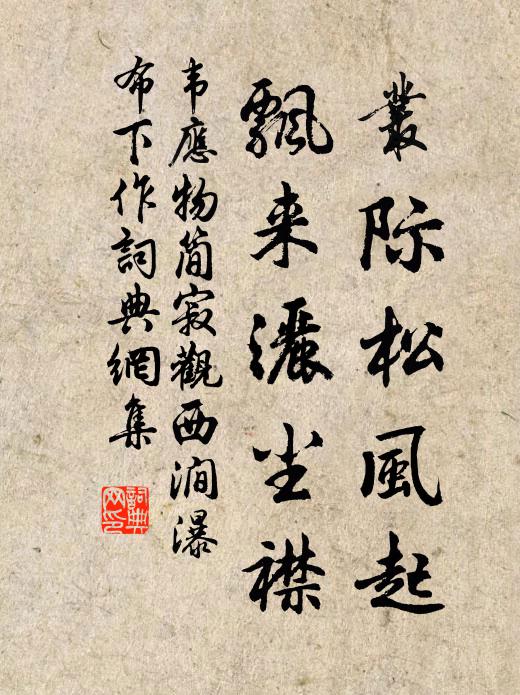 叢际松風起
飄来灑尘襟
韦應物简寂觀西涧瀑
布下作詞典網集
詞典网印